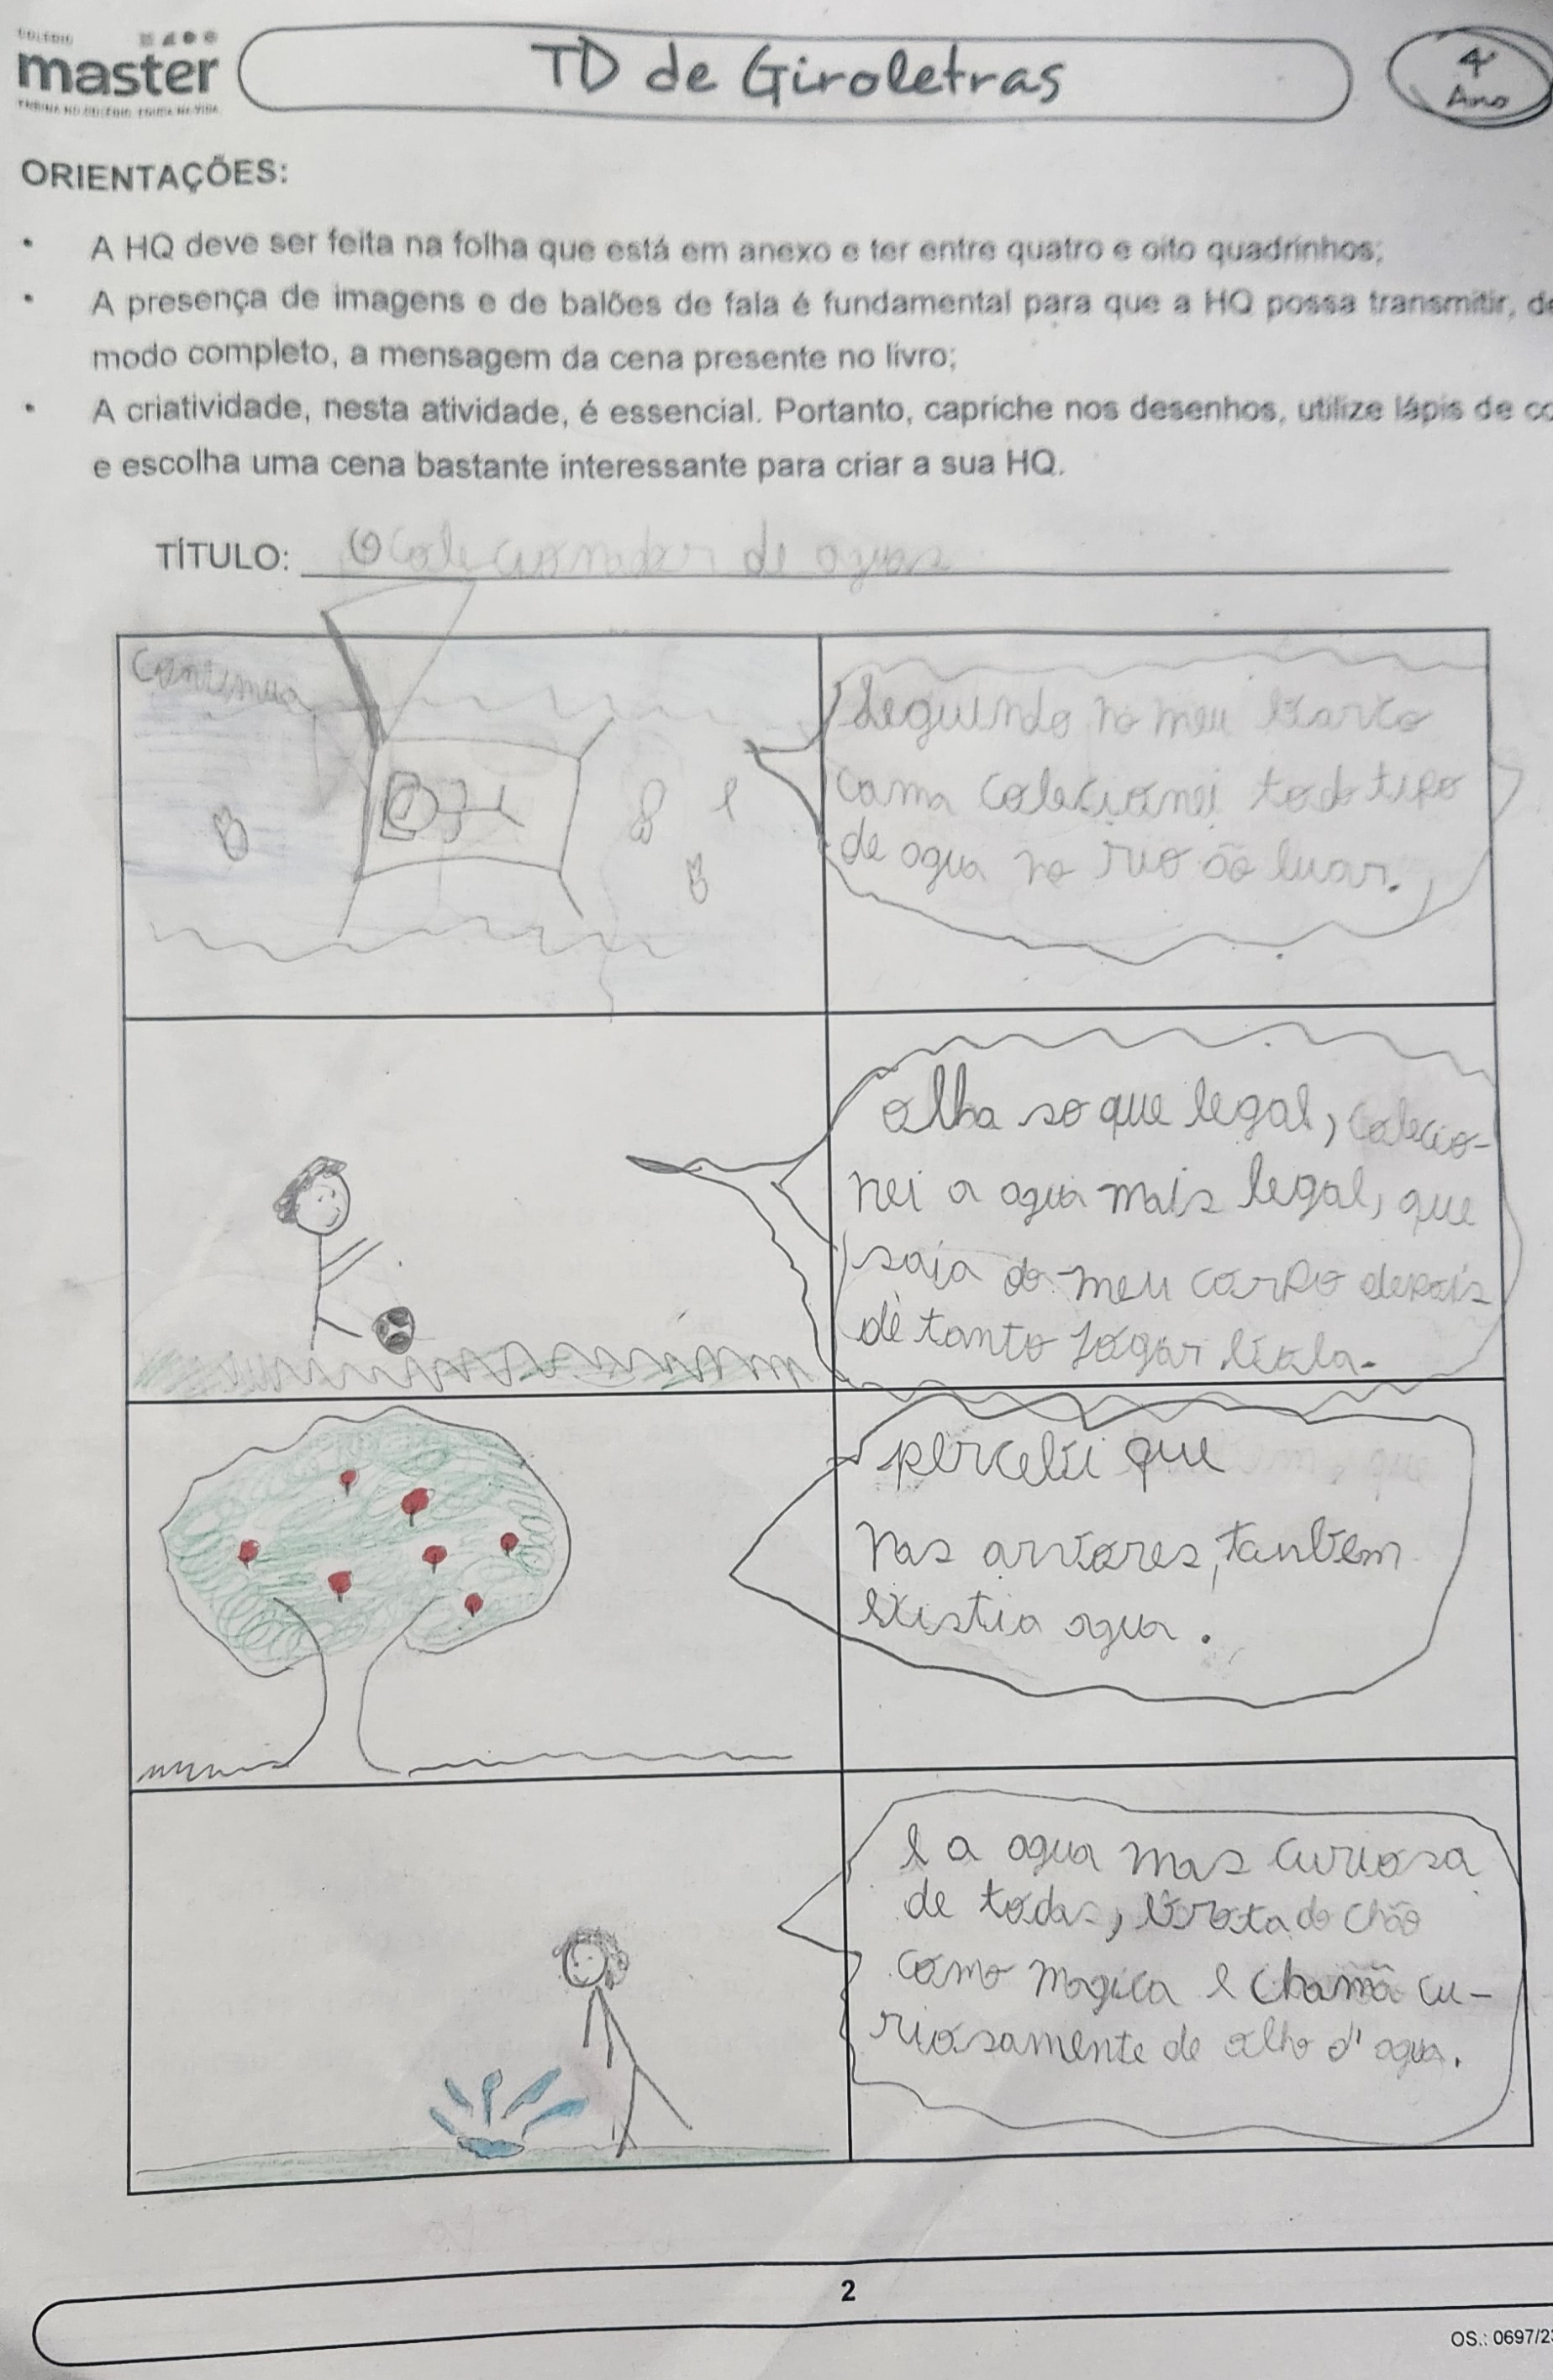 COLÉGIO
master
TD de Giroletras
4
Ano
ORIENTAÇÕES:
• A HQ deve ser feita na folha que está em anexo e ter entre quatro e oito quadrinhos;
• A presença de imagens e de balões de fala é fundamental para que a HQ possa transmitir, de
modo completo, a mensagem da cena presente no livro;
• A criatividade, nesta atividade, é essencial. Portanto, capriche nos desenhos, utilize lápis de co
e escolha uma cena bastante interessante para criar a sua HQ.
TÍTULO: O Colecionador de aguas
Continua
Seguindo no meu barco
cama colecionei todo tipo
de agua no rio ao luar.
olha so que legal, colecio-
nei a agua mais legal, que
saia do meu corpo depois
de tanto jogar bola.
percebi que
nas arvores, tanbem
existia agua.
e a agua mas curiosa
de todas, brota do chão
como magica e chama cu-
riosamente de olho d'agua.
2
OS.: 0697/23